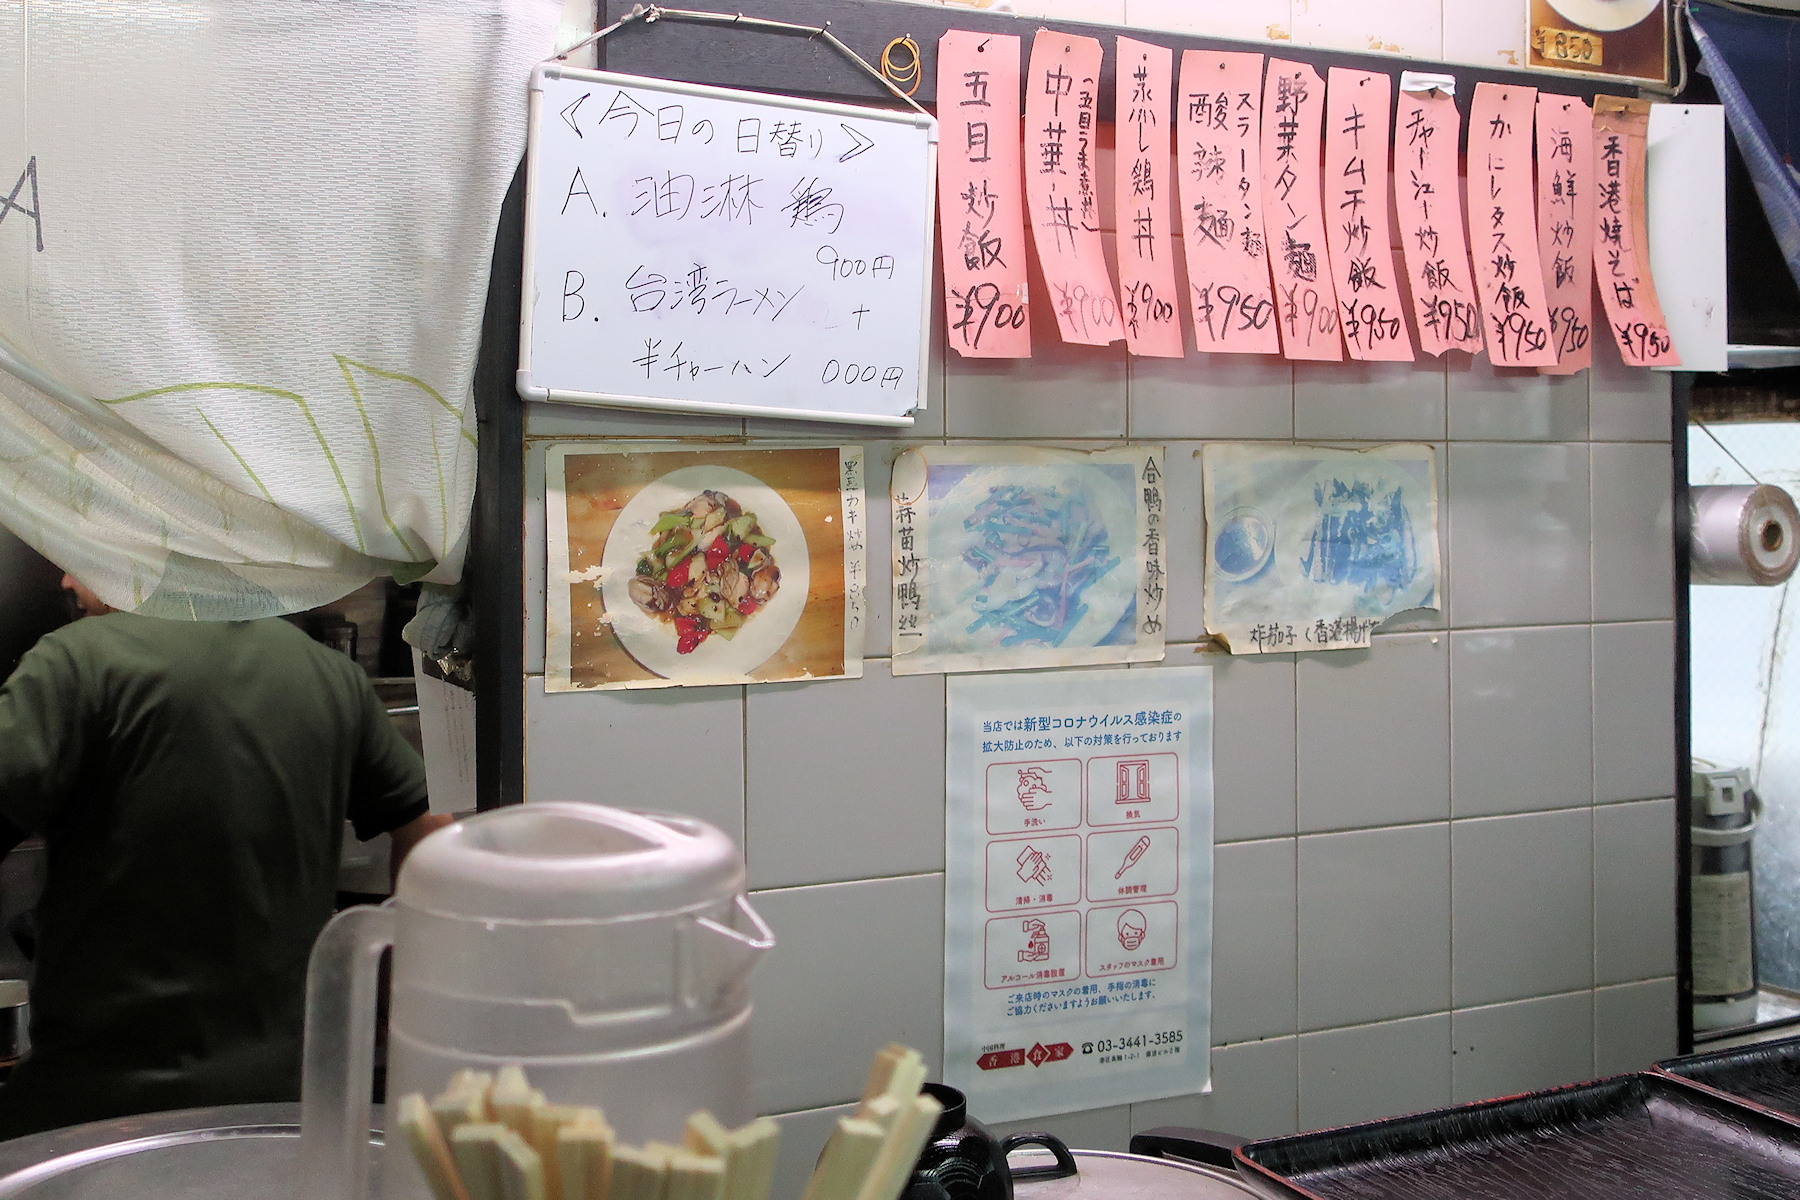 A
<今日の日替り>
A. 油淋鶏
900円
B. 台湾ラーメン
+
半チャーハン 000円
五目炒飯 ¥900
中華丼 (五目うま煮丼) ¥900
蒸し鶏丼 ¥900
スラータン麺
酸辣麺 ¥950
野菜タン麺 ¥900
キムチ炒飯 ¥950
チャーシュー炒飯 ¥950
かにレタス炒飯 ¥950
海鮮炒飯 ¥950
香港焼そば ¥950
¥850
カキ炒め
合鴨の香味炒め
蒜苗炒鴨丝
炸茄子(香港揚げ
当店では新型コロナウイルス感染症の
拡大防止のため、以下の対策を行っております
手洗い
換気
清掃・消毒
体調管理
アルコール消毒設置
スタッフのマスク着用
ご来店時のマスクの着用、手指の消毒に
ご協力くださいますようお願いいたします。
中国料理
香港食家
☎03-3441-3585